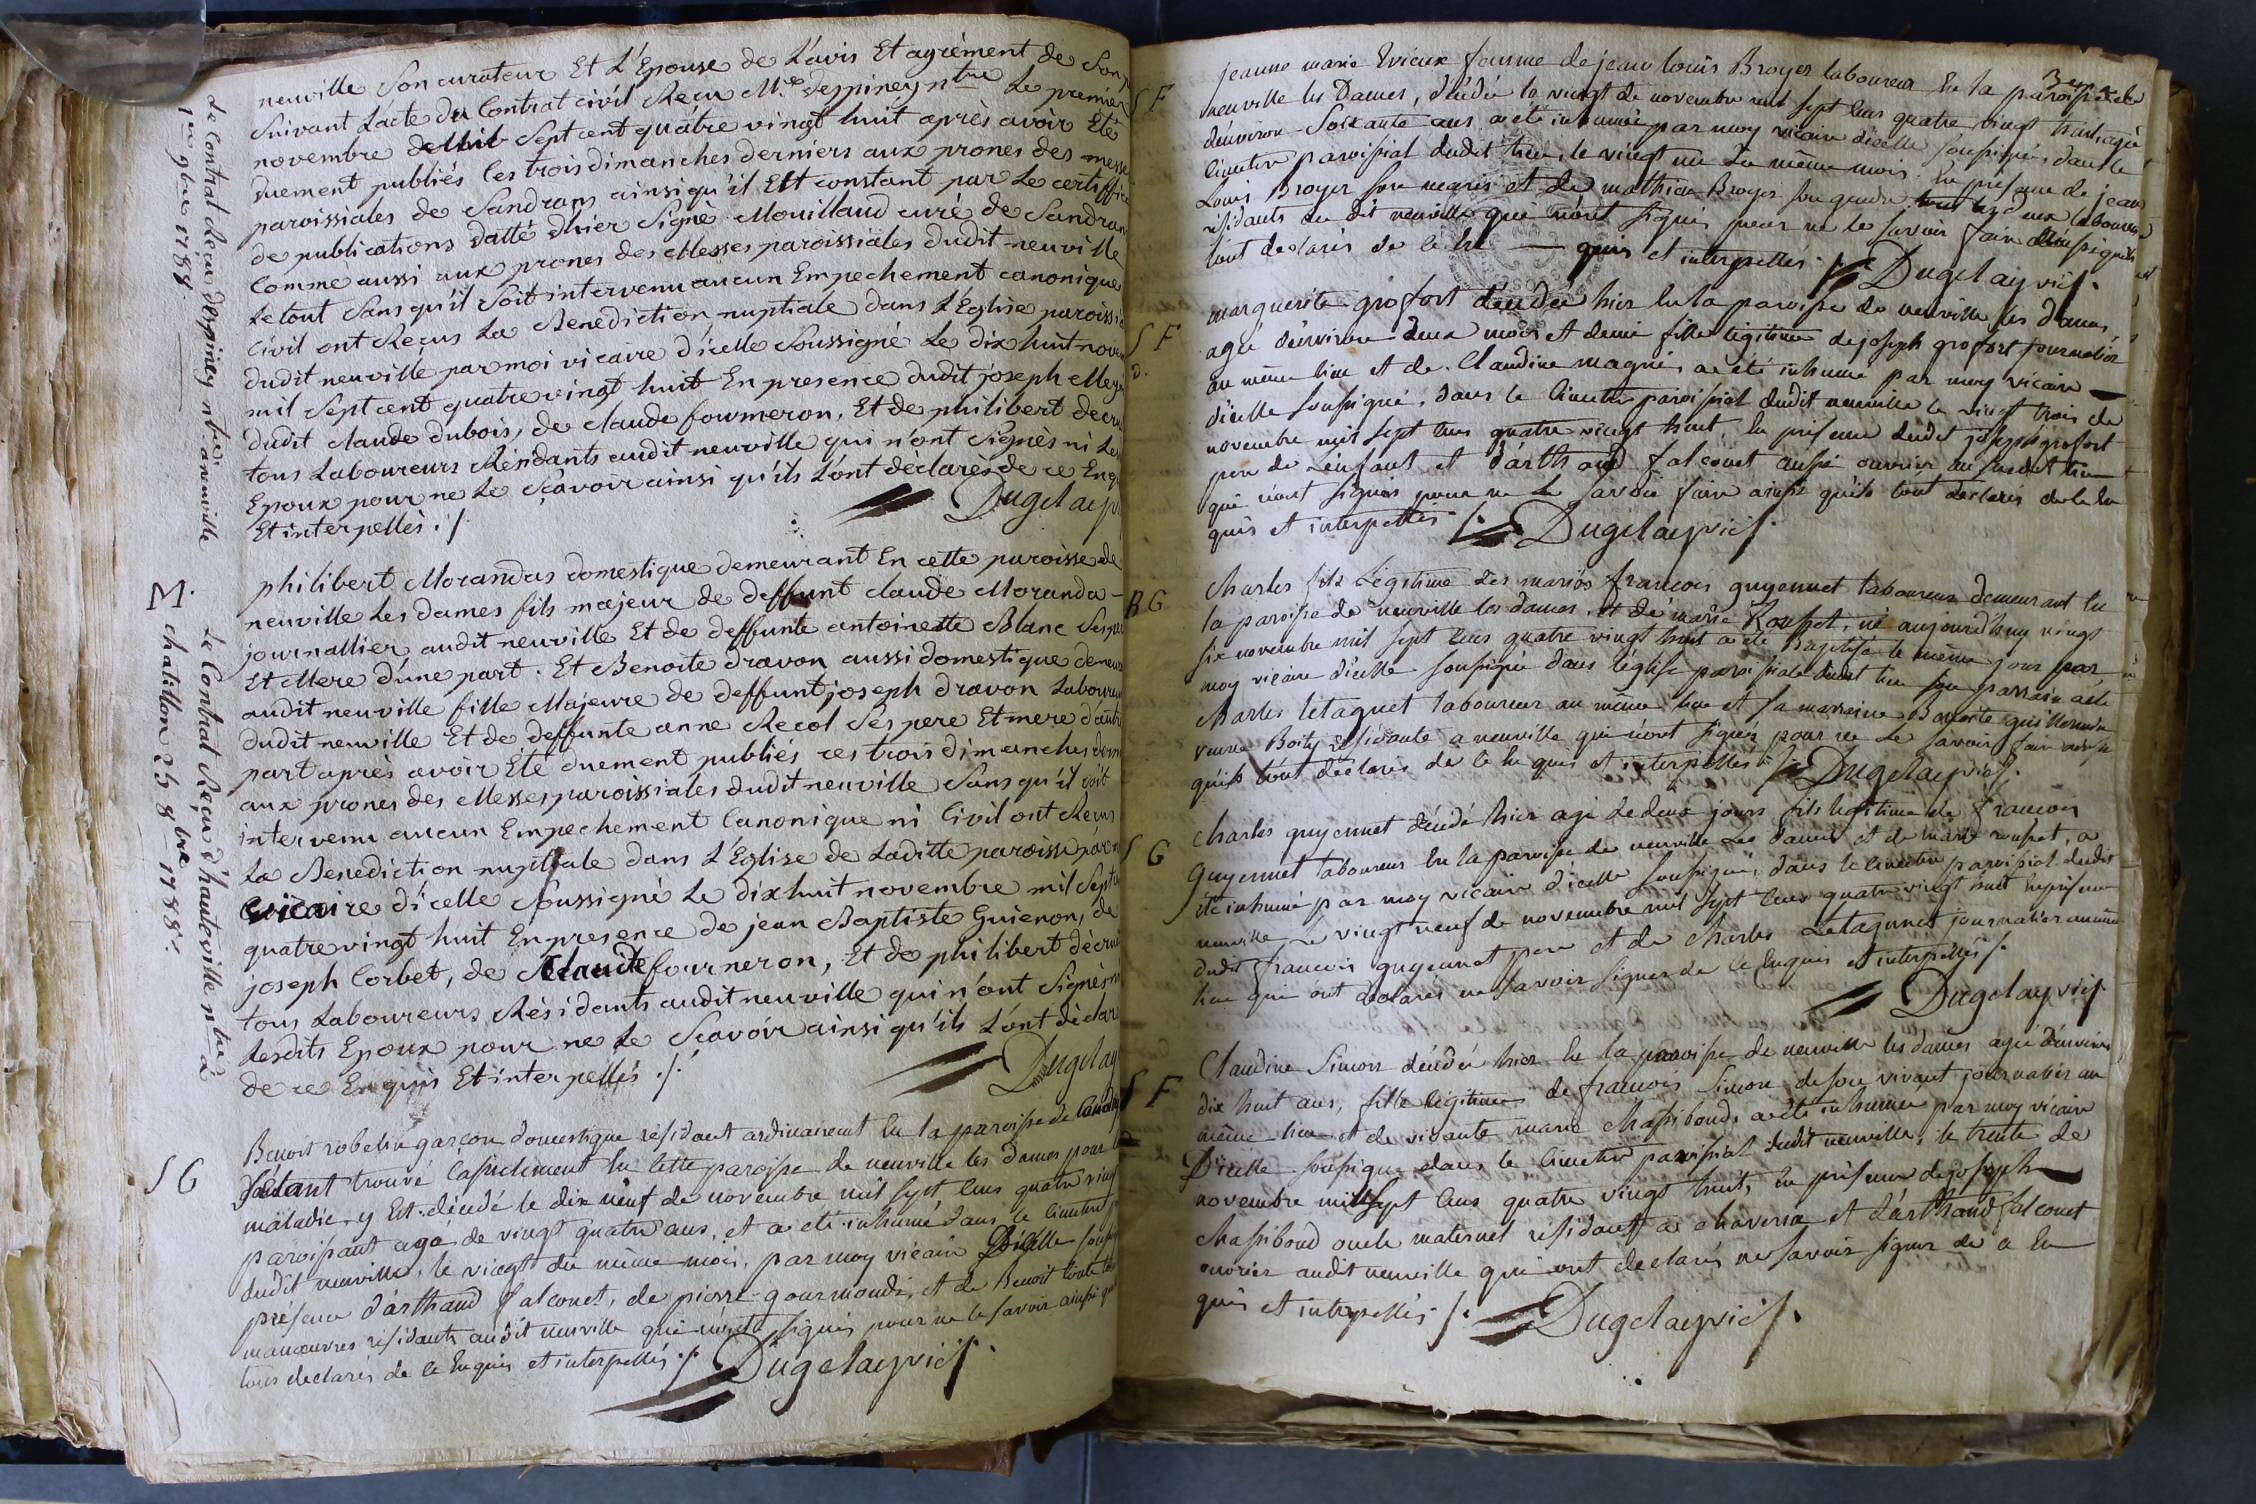 neuville Son curateur Et L'Epouse de L'avis Et agrément de Son
Suivant Lacte du Contrat civil Reçu Me Despiney ntre Le premier
novembre de Mil Sept cent quatre vingt huit après avoir Eté
duement publiés les trois dimanches derniers aux prones des messes
paroissiales de Sandrans ainsi qu'il Est constant par Le certiffi
de publications datté d'hier Signé Mouillaud curé de Sandran
Comme aussi aux prones des Messes paroissiales dudit neuville
Le tout Sans qu'il Soit intervenu aucun Empechement canonique
Civil ont Reçus La Benediction nuptiale dans L'Eglise paroissi
dudit neuville par moi vicaire d'icelle Soussigné Le dix huit nove
mil Sept cent quatre vingt huit En presence dudit joseph
dudit claude dubois, de claude fourneron, Et de philibert decru
tous Laboureurs Résidants audit neuville qui n'ont Signés ni Les
Epoux pour ne Le Sçavoir ainsi qu'ils L'ont déclarés de ce Enq
Et interpellés ./. Dugelay
Le Contrat Reçu despiney ntre à neuville
1er 9bre 1788.
M.
philibert Morandas domestique demeurant En cette paroisse de
neuville Les dames fils majeur de deffunt claude Moranda
journallier audit neuville Et de deffunte antoinette Blanc Ses per
Et Mere d'une part. Et Benoite dravon aussi domestique demeur
audit neuville fille Majeure de deffunt joseph dravon Laboureur
dudit neuville Et de deffunte anne Recol Ses pere Et mere d'autre
part après avoir Eté duement publiés ces trois dimanches dern
aux prones des Messes paroissiales dudit neuville Sans qu'il Soit
intervenu aucun Empechement Canonique ni Civil ont Reçus
La Benediction nuptiale dans L'Eglise de Laditte paroisse par m
vicaire d'icelle Soussigné Le dix huit novembre mil Sept ce
quatre vingt huit En presence de jean Baptiste Guienon, de
joseph Corbet, de Claude fourneron, Et de philibert décru
tous Laboureurs Résidants audit neuville qui n'ont Signés n
Lesdits Epoux pour ne Le Scavoir ainsi qu'ils L'ont déclaré
de ce Enquis Et interpellés ./. Dugelay
Le Contrat Reçu d'hauteville ntre à
chatillon 25 8bre 1788.
S G
Benoit robelin garçon domestique résidant ordinairement En la paroisse de
S'étant trouvé Casuelement En Cette paroisse de neuville les Dames pour
maladie y Est décédé le dix neuf de novembre mil sept Cens quatre ving
paroissant agé de vingt quatre ans, et a été inhumé dans le Cimetre
dudit neuville, le vingt du même mois, par moy vicaire D'icelle sousi
présence d'arthaud falconet, de pierre gourmond, et de Benoit
manœuvres résidants audit neuville qui n'ont signés pour ne le savoir ainsi
tous declarés de ce Enquis et interpellés ./. Dugelay vic.
S F
jeanne marie Evieux femme de jean louis Broyer laboureur En la paroisse de
neuville les Dames, décédée le vingt de novembre mil sept Cens quatre vingt huit agée
d'environ Soixante ans a été inhumée par moy vicaire d'icelle soussigné, dans le
Cimetre paroissial dudit lieu, le vingt un du même mois En présence de jean
Louis Broyer son maris et de mathieu Broyer son gendre tout les deux laboureurs
résidants au dit neuville qui n'ont signés pour ne le savoir faire ainsi qu'ils
l'ont declarés de ce En — quis et interpellés. Dugelay vic.
S F
D.
marguerite grofort décédée hier En la paroisse de neuville les Dames,
agée d'environ deux mois et demi fille légitime de joseph grofort journalier
au même lieu et de Claudine magnin a été inhumé par moy vicaire
d'icelle soussigné, dans le Cimetre paroissial dudit neuville le vingt trois de
novembre mil sept Cens quatre vingt huit, En présence dudit joseph grofort
pere de L'enfant et d'arthaud falconet aussi ouvrier au susdit lieu
qui n'ont signés pour ne Le savoir faire ainsi qu'ils l'ont declarés de Ce En
quis et interpellés ./. Dugelay vic.
B G
Charles fils Légitime des mariés francois guyennet laboureur demeurant En
la paroisse de neuville les dames, et de marie Rousset, né aujourd'huy vingt
six novembre mil sept Cens quatre vingt huit a été Baptisé le même jour par
moy vicaire d'icelle soussigné dans l'église paroissiale dudit lieu son parrain a été
Charles letagnet laboureur au même lieu et sa marraine Benoite
veuve Boity résidante a neuville qui n'ont signés pour ne Le savoir faire ainsi
qu'ils l'ont déclarés de ce En quis et interpellés ./. Dugelay vic.
S G
Charles guyennet décédé hier agé de deux jours fils légitime de francois
guyennet laboureur En la paroisse de neuville Les dames et de marie rousset, a
été inhumé par moy vicaire d'icelle soussigné, dans le Cimetre paroissial dudit
neuville le vingt neuf de novembre mil sept Cens quatre vingt huit En présence
dudit francois guyennet pere et de Charles Letagnet journalier au même
lieu qui ont declarés ne savoir signer de Ce Enquis et interpellés ./.
Dugelay vic.
S F
Claudine Simon décédée hier En la paroisse de neuville les dames agée d'environ
dix huit ans, fille légitime de francois Simon de son vivant journalier au
même lieu et de vivante marie chassiboud, a été inhumée par moy vicaire
D'icelle soussigné dans le Cimetre paroissial dudit neuville, le trente de
novembre mil sept Cens quatre vingt huit, En présence de joseph
chassiboud oncle maternel résidant a chaveria et d'arthaud falconet
ouvrier audit neuville qui ont declarés ne savoir signer de ce En
quis et interpellés ./. Dugelay vic.